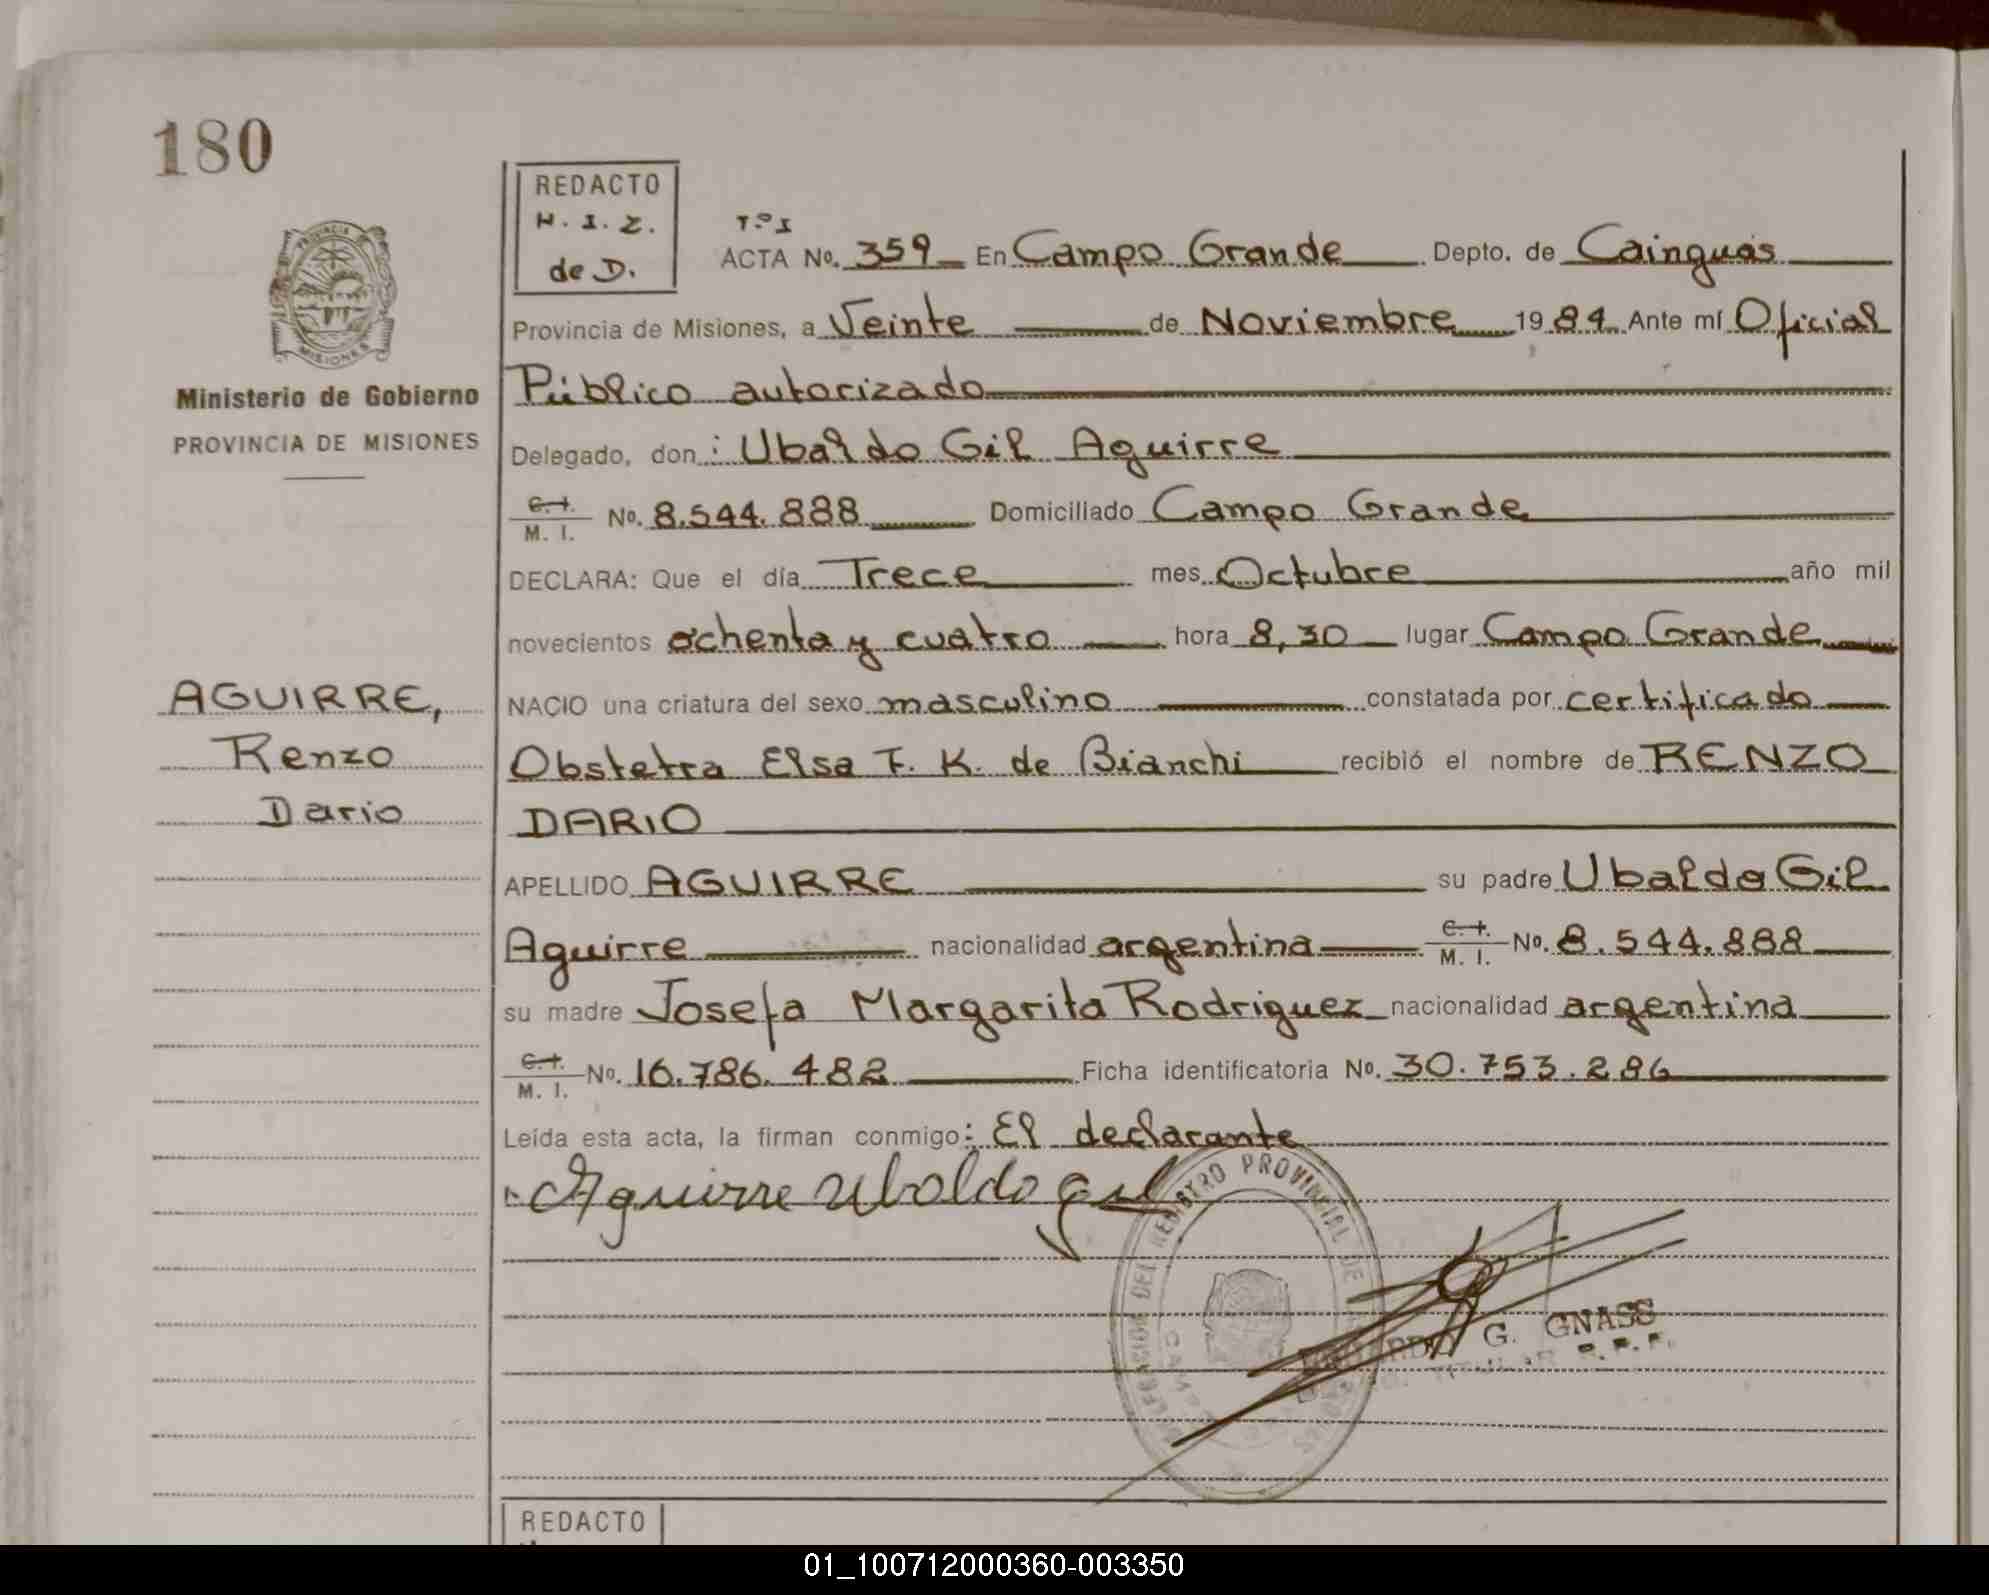 180
REDACTO
H. I. Z.
de D.
PROVINCIA DE
MISIONES
Ministerio de Gobierno
PROVINCIA DE MISIONES
Tº I
ACTA No. 359 En Campo Grande Depto. de Cainguás
Provincia de Misiones, a Veinte de Noviembre 1984 Ante mí Oficial
Público autorizado
Delegado, don: Ubaldo Gil Aguirre
C. I. / M. I. No. 8.544.888 Domiciliado Campo Grande
DECLARA: Que el día Trece mes Octubre año mil
novecientos ochenta y cuatro hora 8,30 lugar Campo Grande
NACIO una criatura del sexo masculino constatada por certificado
Obstetra Elsa F. K. de Bianchi recibió el nombre de RENZO
DARIO
APELLIDO AGUIRRE su padre Ubaldo Gil
Aguirre nacionalidad argentina C. I. / M. I. No. 8.544.888
su madre Josefa Margarita Rodriguez nacionalidad argentina
C. I. / M. I. No. 16.786.482 Ficha identificatoria No. 30.753.286
Leída esta acta, la firman conmigo: El declarante
Aguirre Ubaldo gil
AGUIRRE,
Renzo
Dario
DELEGACION DEL REGISTRO PROVINCIAL DE
G. GNASS
TITULAR R.P.P.
REDACTO
01_100712000360-003350